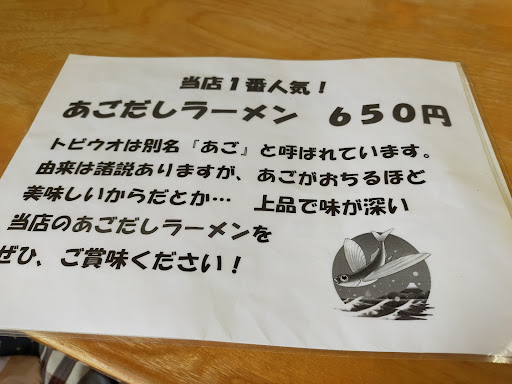 当店1番人気！
あごだしラーメン　６５０円
トビウオは別名『あご』と呼ばれています。
由来は諸説ありますが、あごがおちるほど
美味しいからだとか…　上品で味が深い
当店のあごだしラーメンを
ぜひ、ご賞味ください！